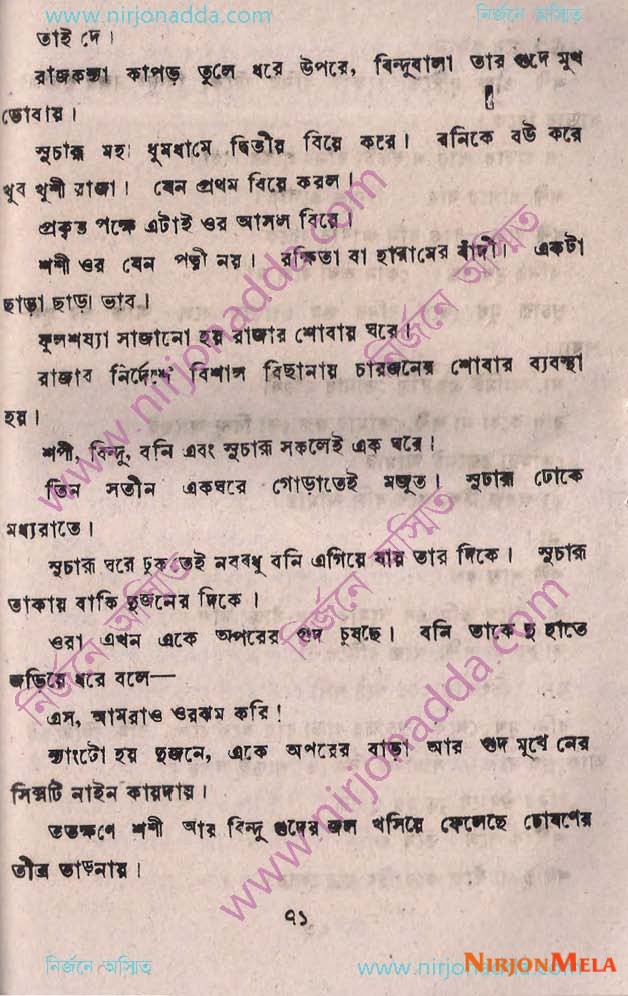 www.nirjonadda.com নির্জনে অস্মিত
তাই দে।
রাজকন্যা কাপড় তুলে ধরে উপরে, বিন্দুবালা তার গুদে মুখ
ডোবায়।
সুচারু মহা ধুমধামে দ্বিতীয় বিয়ে করে। বনিকে বউ করে
খুব খুশী রাজা। যেন প্রথম বিয়ে করল।
প্রকৃত পক্ষে এটাই ওর আসল বিয়ে।
শশী ওর যেন পত্নী নয়। রক্ষিতা বা হারামের বাঁদী। একটা
ছাড়া ছাড়া ভাব।
ফুলশয্যা সাজানো হয় রাজার শোবার ঘরে।
রাজার নির্দেশে বিশাল বিছানায় চারজনের শোবার ব্যবস্থা
হয়।
শশী, বিন্দু, বনি এবং সুচারু সকলেই এক ঘরে!
তিন সতীন একঘরে গোড়াতেই মজুত। সুচারু ঢোকে
মধ্যরাতে।
সুচারু ঘরে ঢুকতেই নববধূ বনি এগিয়ে যায় তার দিকে। সুচারু
তাকায় বাকি দুজনের দিকে।
ওরা এখন একে অপরের গুদ চুষছে। বনি তাকে দু হাতে
জড়িয়ে ধরে বলে—
এস, আমরাও ওরকম করি!
ন্যাংটো হয় দুজনে, একে অপরের বাড়া আর গুদ মুখে নের
সিক্সটি নাইন কায়দায়।
ততক্ষণে শশী আর বিন্দু গুদের জল খসিয়ে ফেলেছে চোষণের
তীব্র তাড়নায়।
৭১
নির্জনে অস্মিত www.nirjonadda.com NIRJONMELA